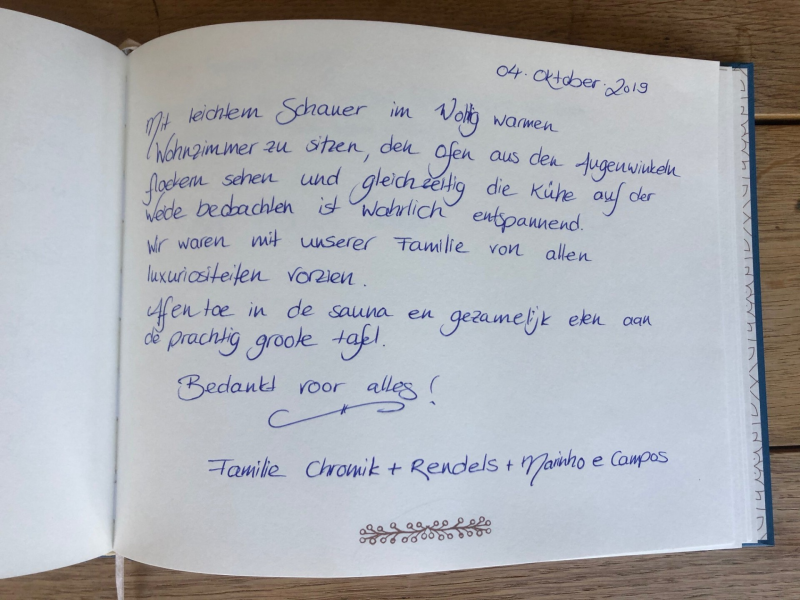 04. Oktober. 2019
Mit leichtem Schauer im Wollig warmen
Wohnzimmer zu sitzen, den Ofen aus den Augenwinkeln
flackern sehen und gleichzeitig die Kühe auf der
Weide beobachten ist wahrlich entspannend.
Wir waren mit unserer Familie von allen
luxuriositeiten vorzien.
Afen toe in de sauna en gezamelijk eten aan
de prachtig groote tafel.
Bedankt voor alles!
Familie Chromik + Rendels + Marinho e Campos